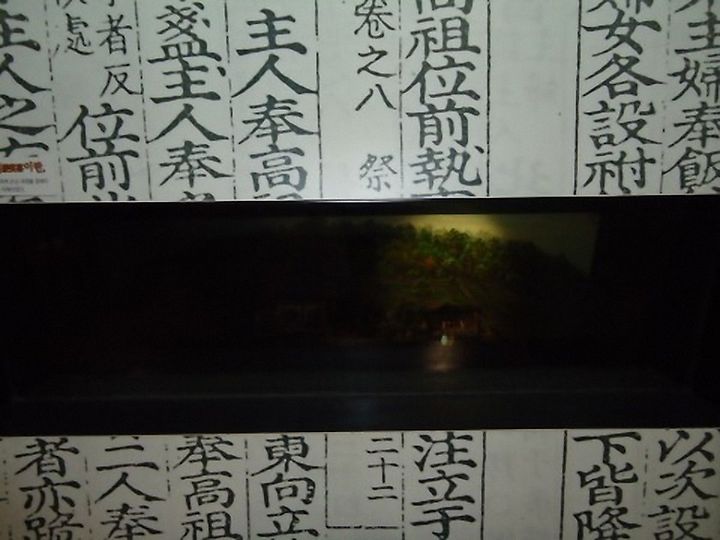 主婦奉飯
婦女各設祔
高祖位前執
卷之八 祭
主人奉高祖
盞主人奉
者反
處
位前
主人之
以次設
下皆降
注立于
二十二
東向立
奉高祖
二人奉
者亦跪